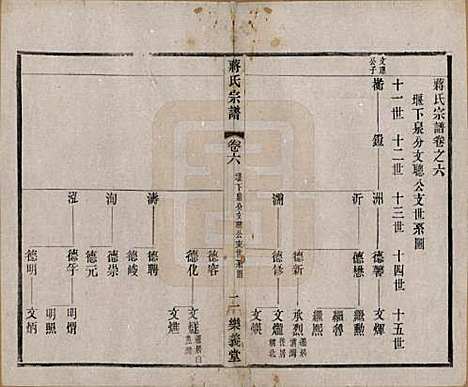 蔣氏宗譜卷之六
堰下泉分文聰公支世系圖
十一世 十二世 十三世 十四世 十五世
文聰公子
衢 鐙 洲 德馨 文煇
沂 德懋 繼勳
繼蓉
繼熙
德新 承烈
瀾 德修 文燫
文煐
德容
德化
文燋
濤 德聘
德峻
洵 德崇
德元
泓 德午 明熠
明照
德明 文炳
蔣氏宗譜
卷六
堰下泉分文聰公支世系圖
二
樂義堂